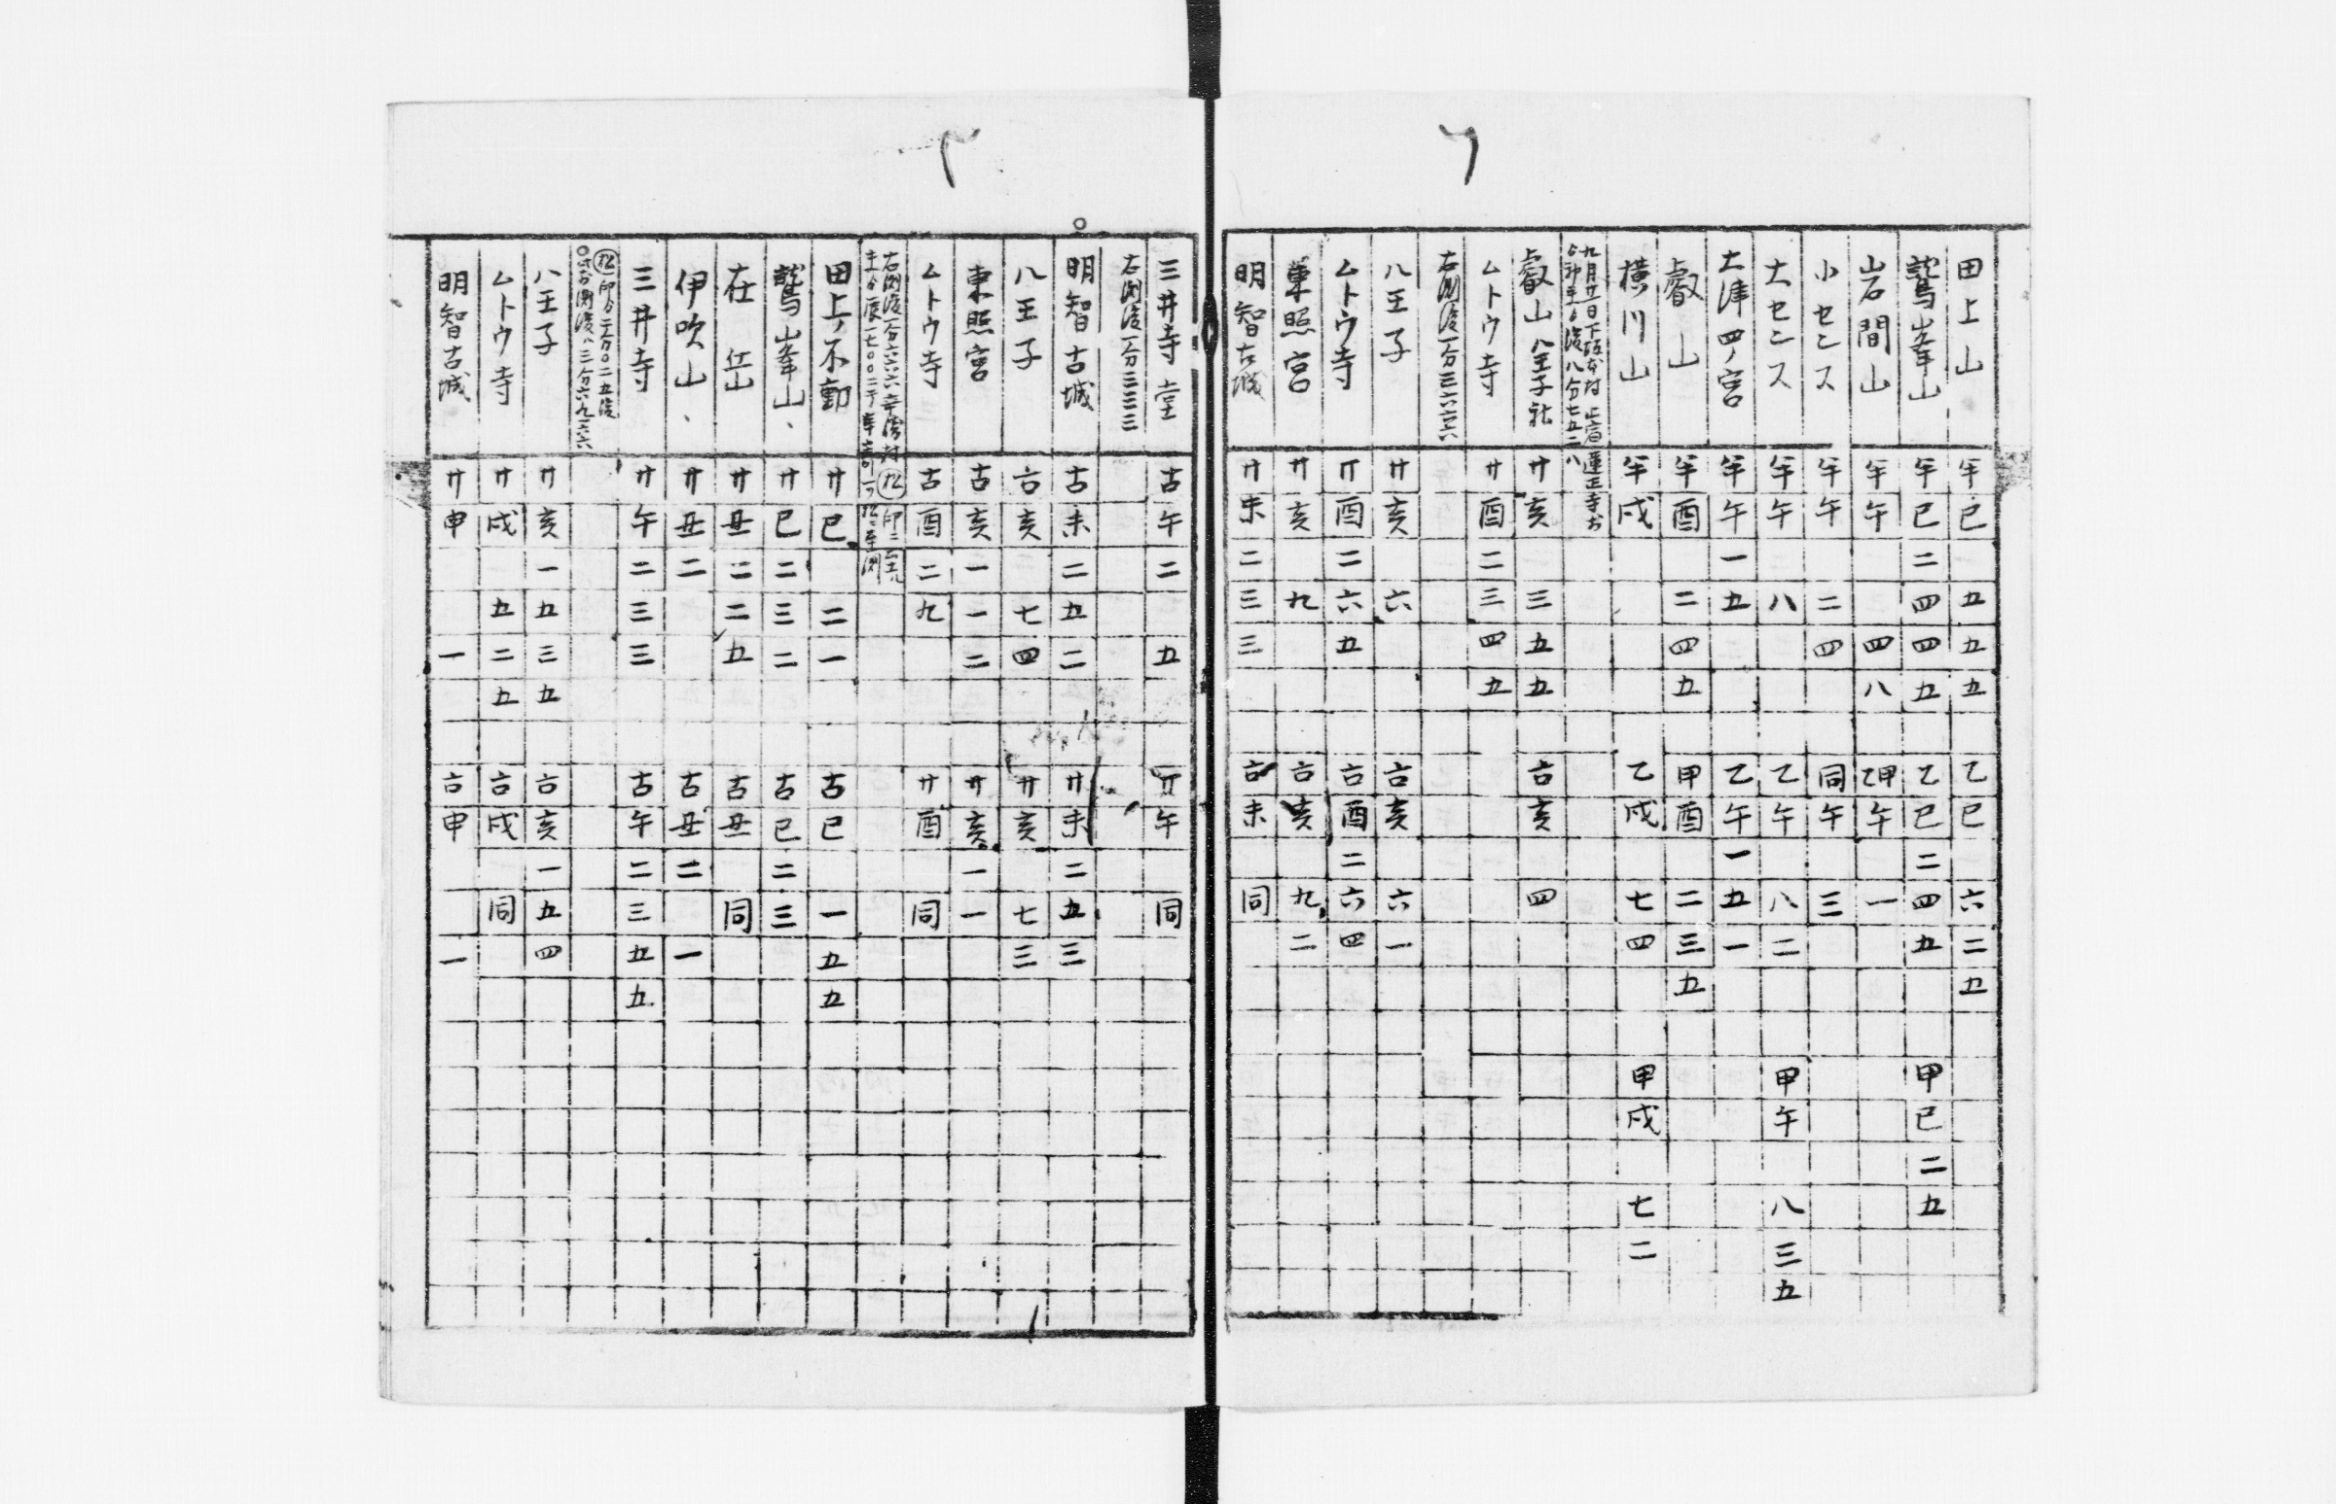 田上山 午巳 五五五 乙巳 六二五
鷲峯山 午巳二四四五 乙巳二四五 甲巳二五
岩間山 午午 四八 乙甲午 一
小センス 午午 二四 同午 三
大センス 午午 八 乙午 八二 甲午 八三五
大津四ノ宮 午午一五 乙午一五一
叡山 午酉 二四五 甲酉 二三五
横川山 午戌 乙戌 七四 甲戌 七二
九月廿日下坂本村 蓮正寺ゟ
叡山八王子社 廿亥 三五五 古亥 四
ムトウ寺 廿酉二三四五
右測后一分三六六六
八王子 廿亥 六 古亥 六一
ムトウ寺 廿酉二六五 古酉二六四
東照宮 廿亥 九 古亥 九二
明智古城 廿未二三三 古未 同
三井寺堂 古午二 五 廿午 同
右測后一分三三三
明智古城 古未二五二 廿未二五三
八王子 古亥 七四 廿亥 七三
東照宮 古亥一一二 廿亥一一
ムトウ寺 古酉二九 廿酉 同
田上ノ不動 廿巳 二一 古巳 一五五
鷲峯山、 廿巳二三二 古巳二三
在岳 廿丑二二五 古丑 同
伊吹山、 廿丑二 古丑二 一
三井寺 廿午二三三 古午二三五五
八王子 廿亥一五三五 古亥一五四
ムトウ寺 廿戌 五二五 古戌 同
明智古城 廿申 一 古申 一